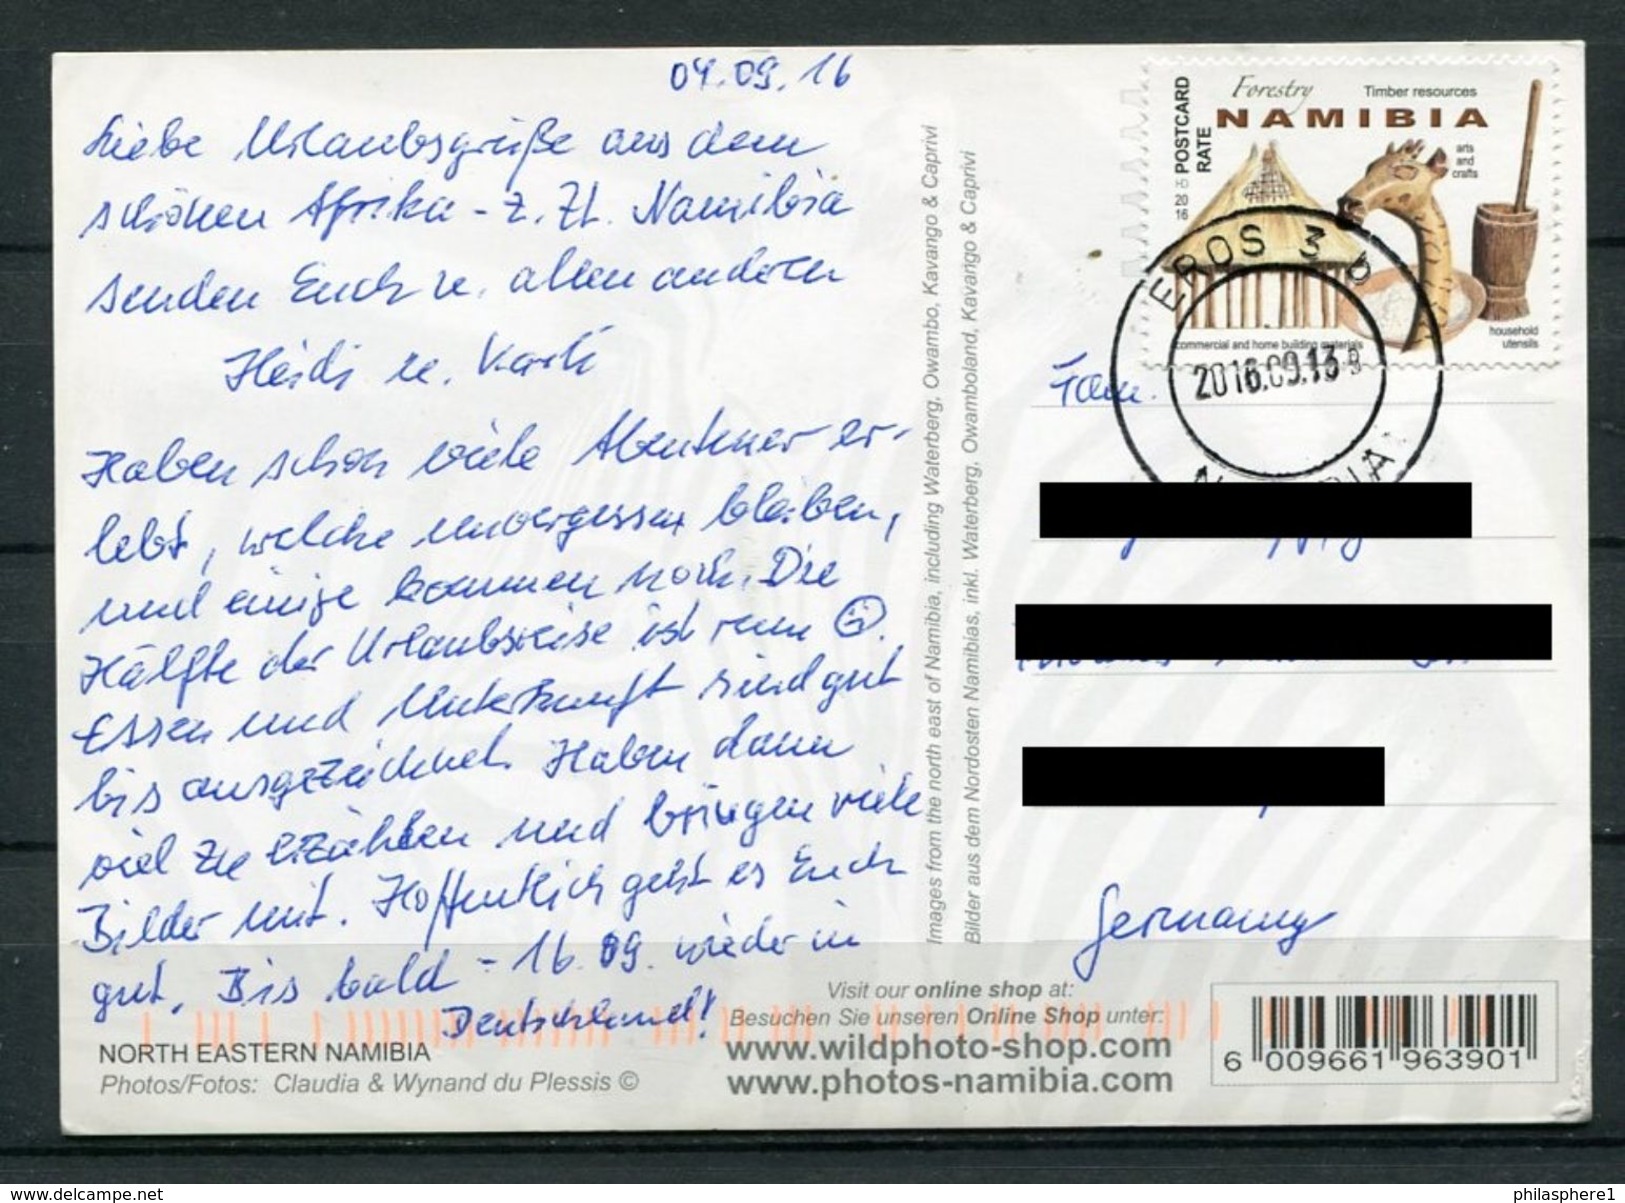 04.09.16
Liebe Urlaubsgrüße aus dem
schönen Afrika - z. Zt. Namibia
senden Euch u. allen anderen
Heidi u.
Haben schon viele Abenteuer er-
lebt, welche unvergessen bleiben,
und einige kommen noch. Die
Hälfte der Urlaubsreise ist rum ☹.
Essen und Unterkunft sind gut
bis ausgezeichnet. Haben dann
viel zu erzählen und bringen viele
Bilder mit. Hoffentlich geht es Euch
gut. Bis bald - 16.09. wieder in
Deutschland!
NORTH EASTERN NAMIBIA
Photos/Fotos: Claudia & Wynand du Plessis ©
Images from the north east of Namibia, including Waterberg, Owambo, Kavango & Caprivi
Bilder aus dem Nordosten Namibias, inkl. Waterberg, Owamboland, Kavango & Caprivi
Visit our online shop at:
Besuchen Sie unseren Online Shop unter:
www.wildphoto-shop.com
www.photos-namibia.com
POSTCARD
RATE
2016
Forestry
Timber resources
NAMIBIA
arts
and
crafts
household
utensils
commercial and home building materials
EROS 3
2016.09.13
Fam.
Germany
6 009661 963901
www.delcampe.net
philasphere1